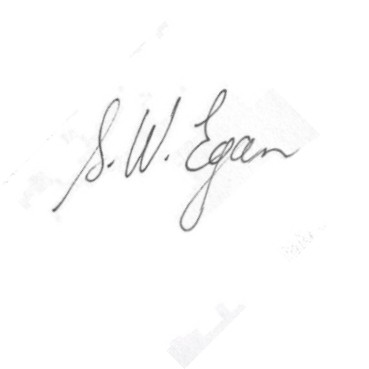 S. W. Egan